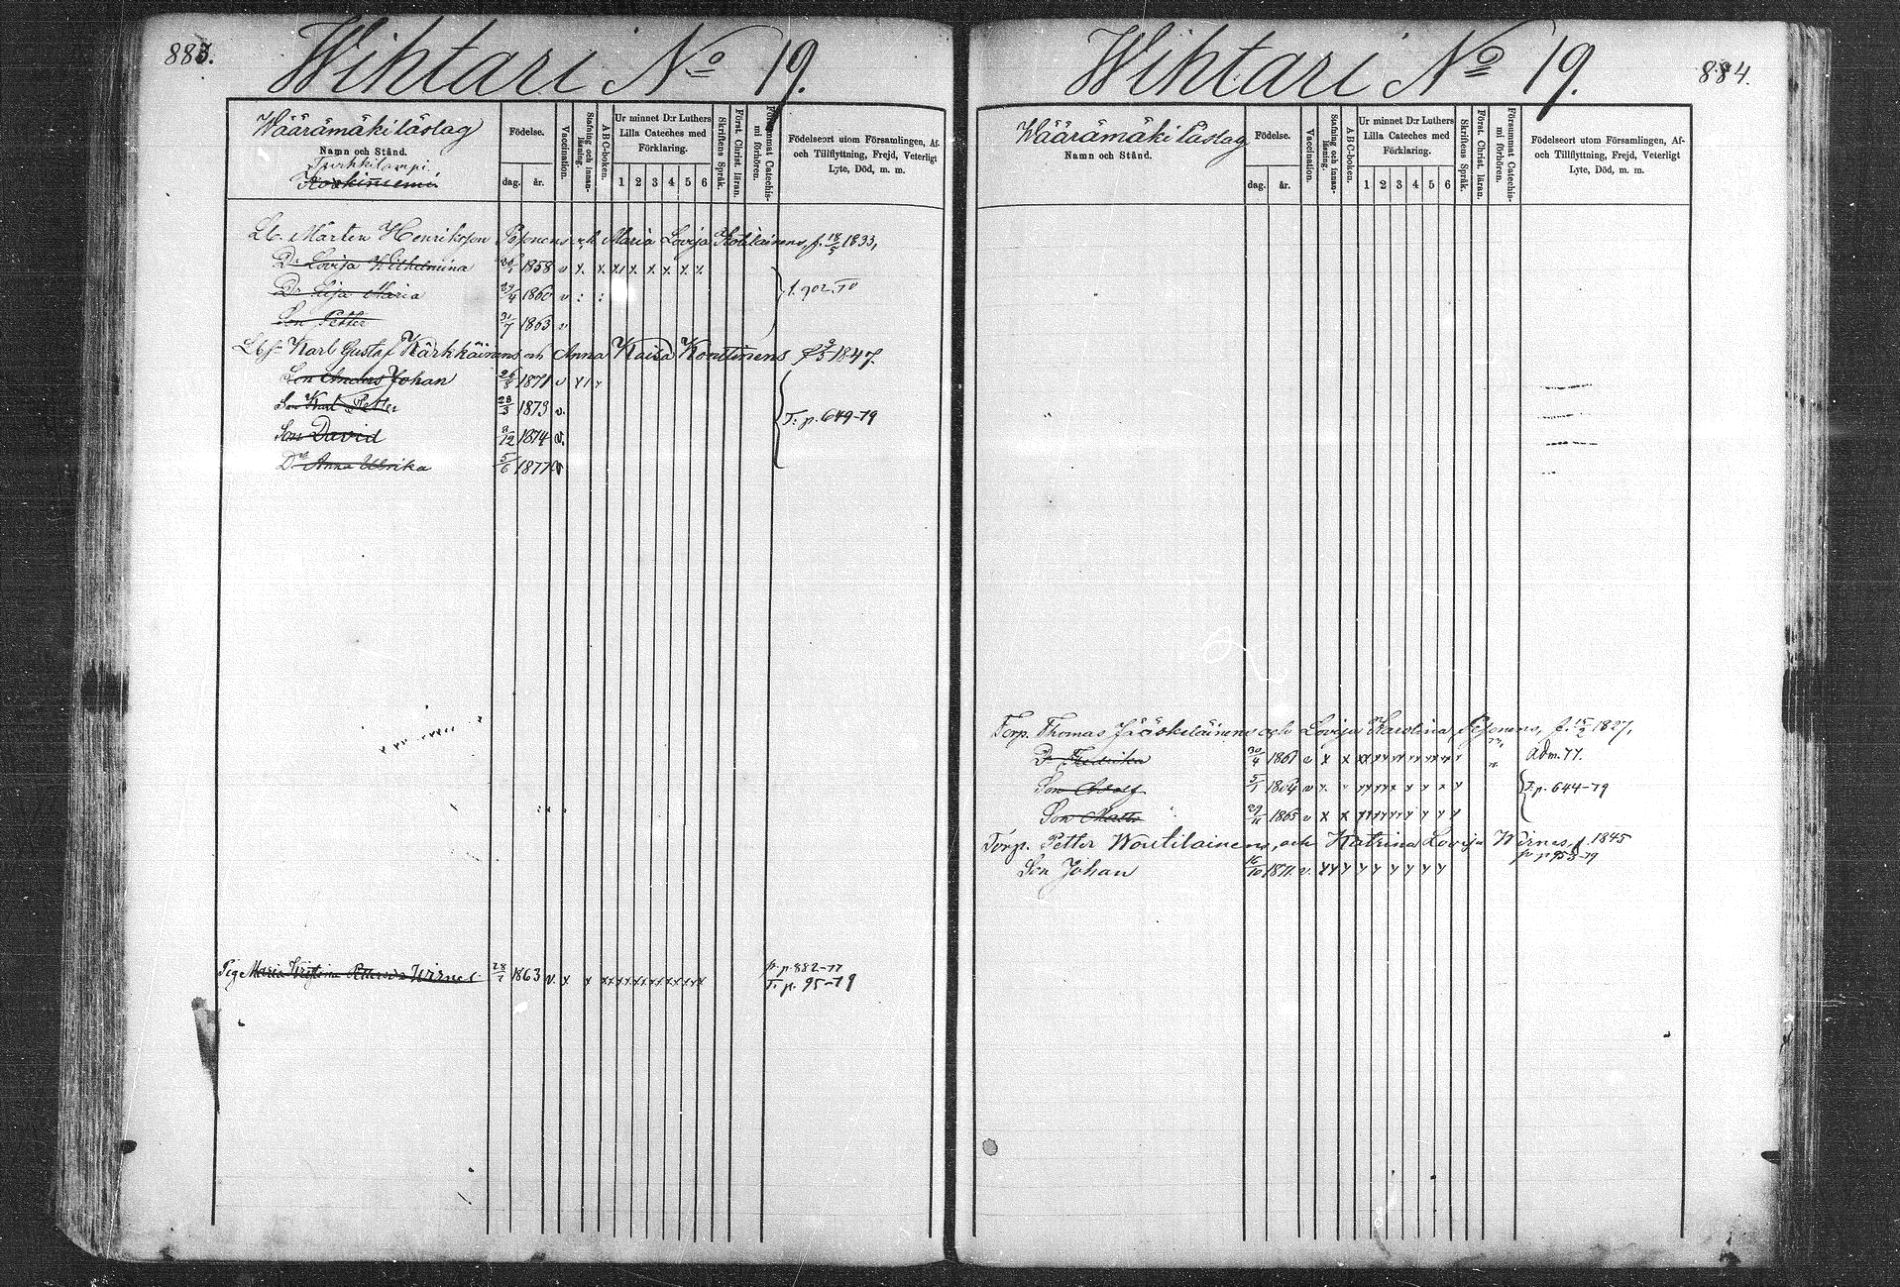 883.
Wihtari No 19.
Wäärämäki läslag
Namn och Stånd.
Födelse.
dag.
år.
Vaccination.
Stafning och innan-läsning.
ABC-boken.
Ur minnet D:r Luthers
Lilla Cateches med
Förklaring.
1 2 3 4 5 6
Skriftens Språk.
Först. Christ. läran.
Försummat Catechis-mi förhören.
Födelseort utom Församlingen, Af-
och Tillflyttning, Frejd, Veterligt
Lyte, Död, m. m.
Lb. Mårten Henriksson Pesonens och Maria Lovisa Kotilainens, f. 18/5 1833,
Dr Lovisa Wilhelmina 1858 v x x x x x x x x
Dr Maria 29/4 1860 v : :
Son Petter 31/7 1863 v
Karl Gustaf Kärkkäinens och Anna Kaisa Kontinens 1847.
Son Anders Johan 26/8 1871 v
Son Karl Petter 28/3 1873 v.
Son David 9/12 1874 v.
T. p. 649-79
Dr Anna Ulrika 5/6 1877 v
Pig. Maria Kristina Wirnes 1863 v. x x
fr. p. 882-77
T. p. 95-79
884.
Wihtari No 19.
Wäärämäki läslag
Namn och Stånd.
Födelse.
dag.
år.
Vaccination.
Stafning och innan-läsning.
ABC-boken.
Ur minnet D:r Luthers
Lilla Cateches med
Förklaring.
1 2 3 4 5 6
Skriftens Språk.
Först. Christ. läran.
Försummat Catechis-mi förhören.
Födelseort utom Församlingen, Af-
och Tillflyttning, Frejd, Veterligt
Lyte, Död, m. m.
Torp. Thomas Jääskeläinens och Lovisa Karolina Pesonens, f. 15/2 1827,
Dr Fredrika 30/4 1861 v x x Adm. 77.
Son Adolf 5/1 1864 v T. p. 644-79
Son 29/11 1865 v x x
Torp. Petter Woutilainens, och Katrina Lovisa Wirnes, f. 1845
Son Johan 16/10 1871. v.